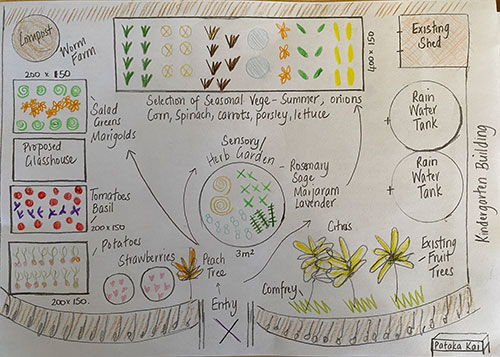 Compost
Worm
Farm
200 x 150
Salad
Greens
Marigolds
Proposed
Glasshouse
Tomatoes
Basil
200 x 150
Potatoes
200 x 150.
Strawberries
Peach
Tree
400 x 150
Selection of Seasonal Vege - Summer, onions
Corn, Spinach, carrots, parsley, lettuce
Sensory/
Herb Garden
- Rosemary
Sage
Marjaram
Lavender
3m²
Entry
X
Existing
Shed
Rain
Water
Tank
Rain
Water
Tank
Kindergarten Building
Citrus
Existing
- Fruit
Trees
Comfrey
Pataka Kai